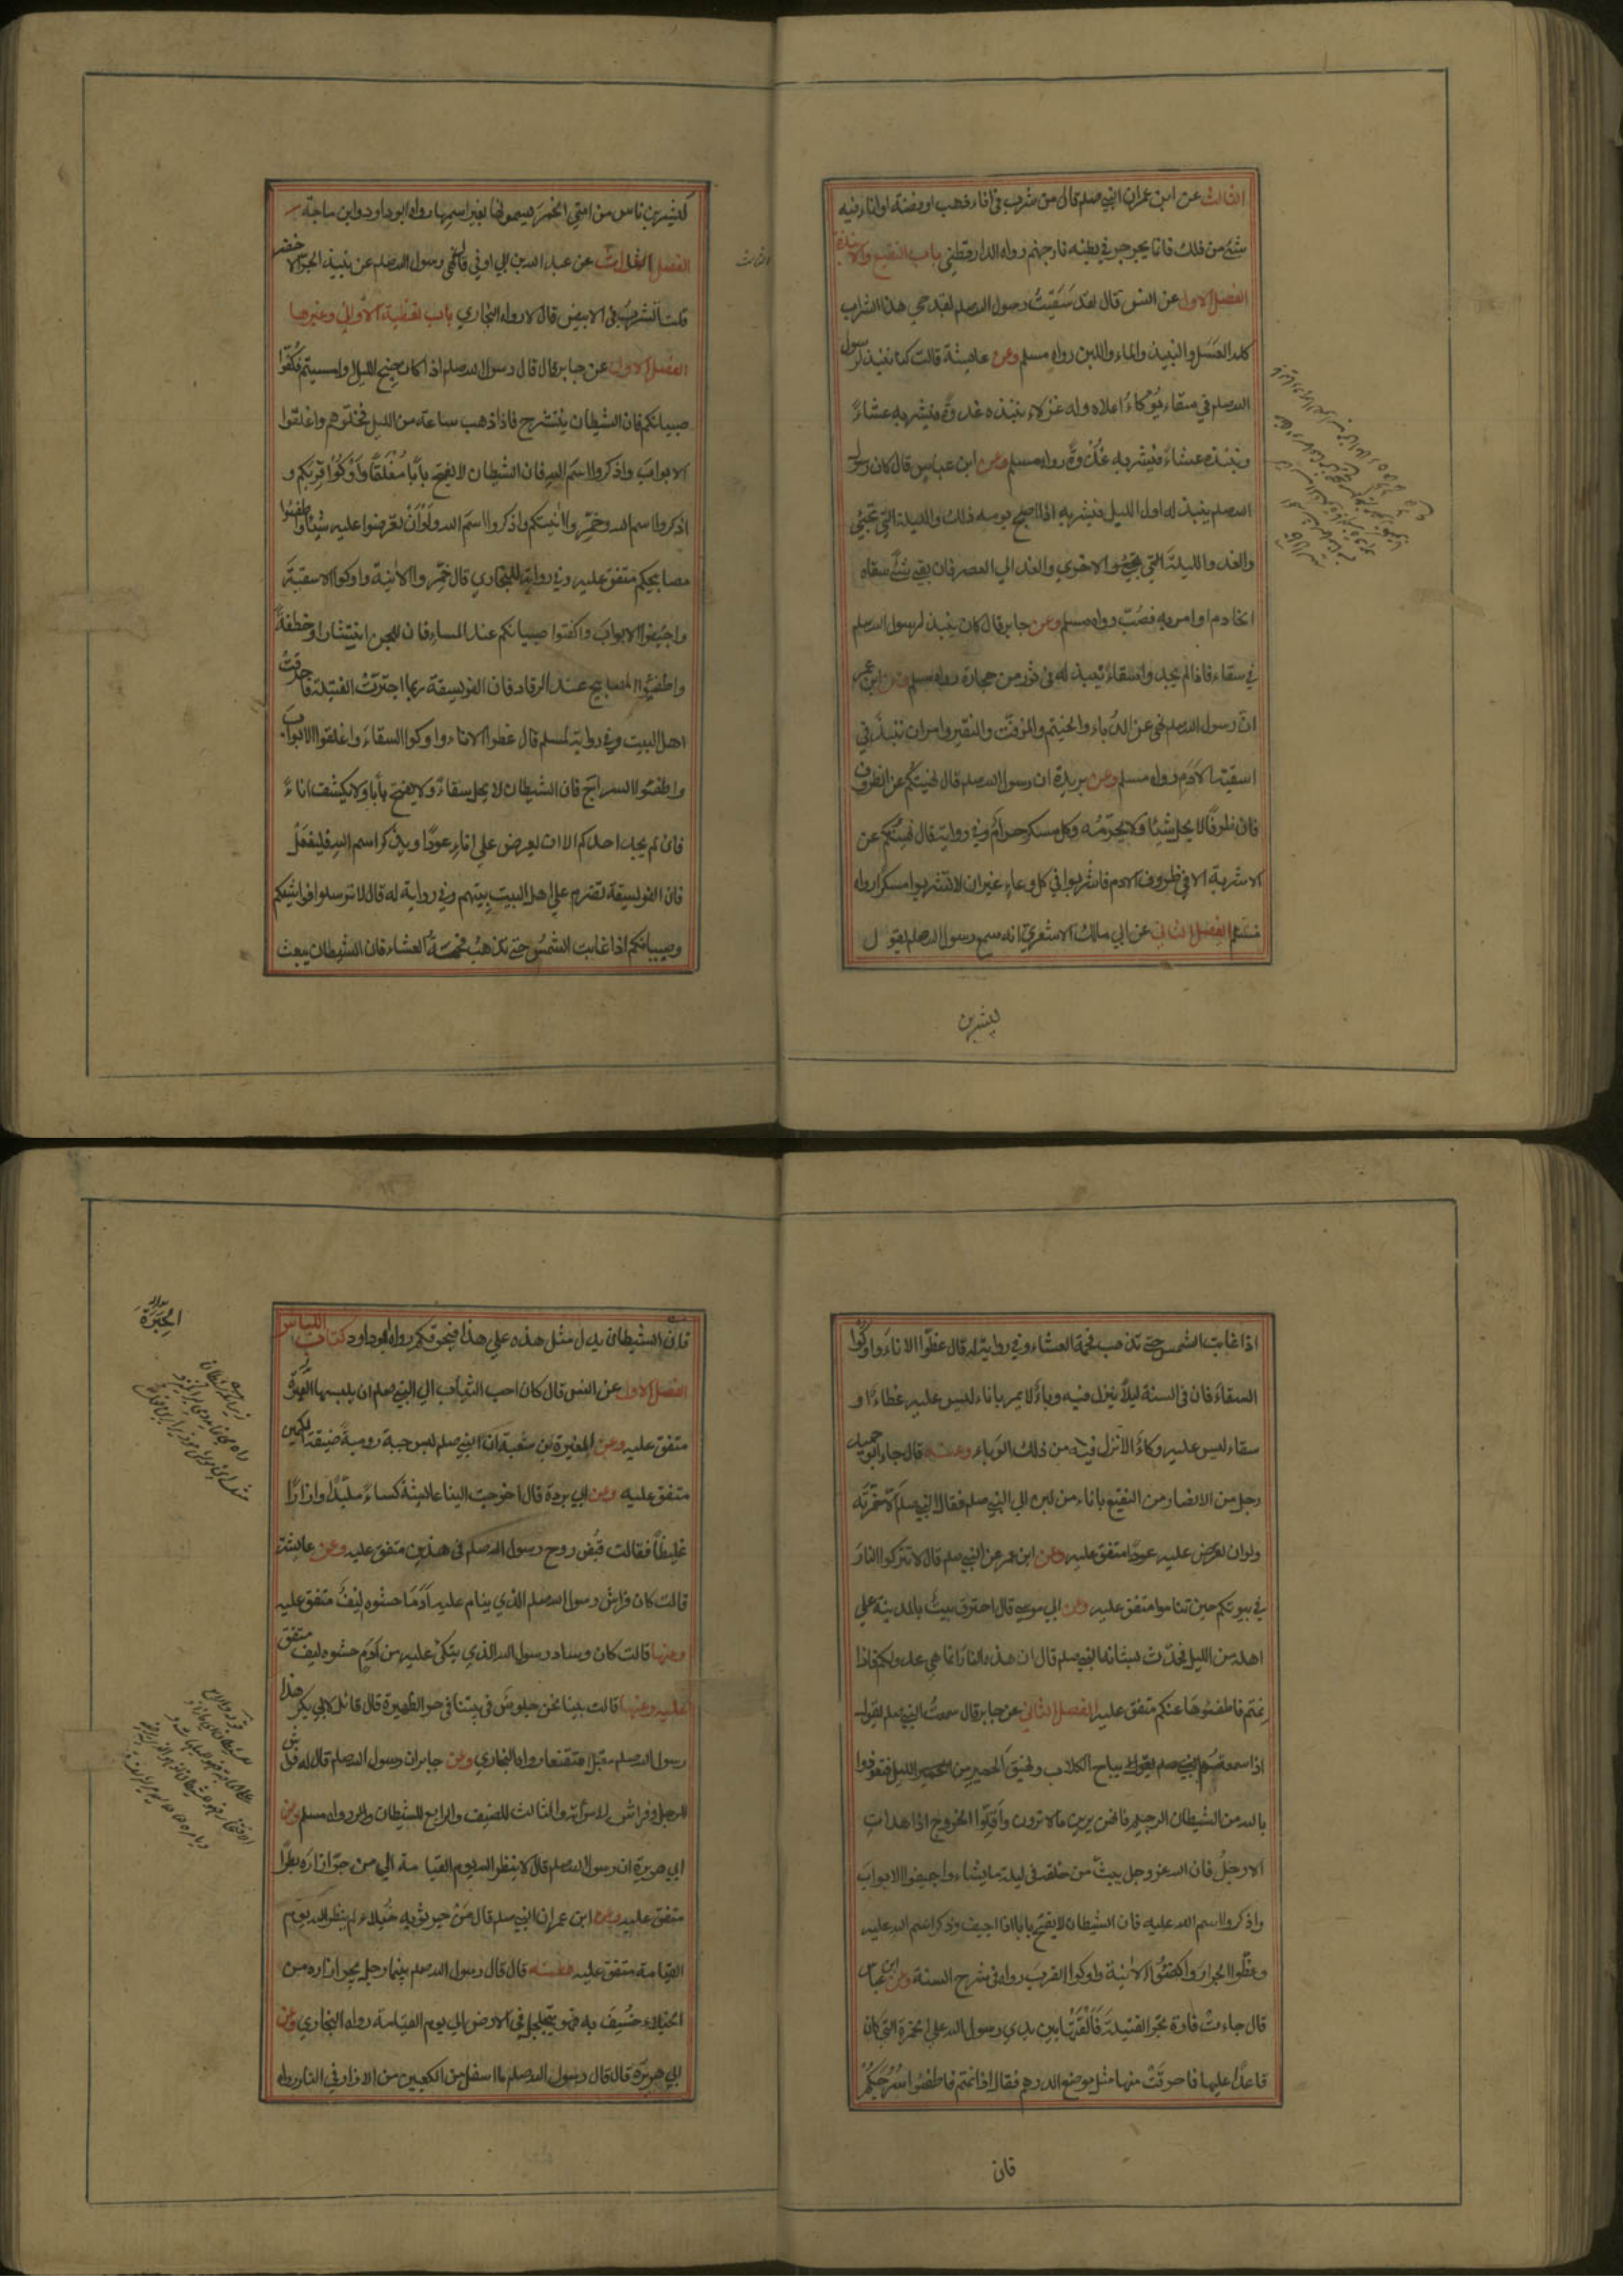 الثالث عن ابن عمر ان النبي صلعم قال من شرب في اناء ذهب او فضة او اناء فيه
شئ من ذلك فانما يجرجر في بطنه نار جهنم رواه الدارقطني باب النقيع والانبذة
الفصل الاول عن انس قال لقد سَقَيتُ رسول الله صلعم بقدحي هذا الشراب
كله العَسَل والنبيذ والماء واللبن رواه مسلم وعن عايشة قالت كنا ننبذ لرسول
الله صلعم في سقاء يُوكاءُ اعلاه وله عزلاء ننبذه غدوةً فيشربه عشاءً
وننبذه عشاءً فيشربه غُدْوةً رواه مسلم وعن ابن عباس قال كان رسول
الله صلعم ينبذ له اول الليل فيشربه اذا اصبح يومه ذلك والليلة التي تجئي
والغد والليلةَ التي تجئ والاخري والغد الي العصر فان بقي شئٌ سقاه
الخادم او امر به فصُبّ رواه مسلم وعن جابر قال كان ينبذ لرسول الله صلعم
في سقاء فاذا لم يجدوا سقاءً يُنبذ له في تَور من حجارة رواه مسلم وعن ابن عمر
انّ رسول الله صلعم نهي عن الدُباء والحنتم والمزفت والنقير وامر ان ننبذ في
اسقية الاَدَم رواه مسلم وعن بريدة ان رسول الله صلعم قال نهيتكم عن الظروف
فان ظرفًا لا يحل شيئا ولا يحرّمُه وكل مسكر حرامٌ وفي رواية قال نهيتُكم عن
الاشربة الا في ظروف الادم فاشربوا في كل وعاءٍ غير ان لا تشربوا مسكرا رواه
مسلم الفصل الثاني عن ابي مالك الاشعري انه سمع رسول الله صلعم يقول
ليشربن
ليشربن ناس من امتي الخمرَ يسمونها بغير اسمها رواه ابوداود وابن ماجة
الفصل الثالث عن عبد الله بن ابي اوفي قال نهي رسول الله صلعم عن نبيذ الجرّ الاخضر
الثالث
قلت انشرب في الابيض قال لا رواه البخاري باب تغطية الاَواني وغيرها
الفصل الاول عن جابر قال قال رسول الله صلعم اذا كان جِنح الليل او امسيتم فكُفّوا
صبيانكم فان الشيطان ينتشر ح فاذا ذهب ساعة من الليل فخلّوهم واغلقوا
الابوابَ واذكروا اسمَ اللهِ فان الشيطان لا يفتح باَبًا مُغلَقًا وَاَوْكُوْا قِرَبَكم و
اذكروا اسم الله وخمّروا اٰنيتكم واذكروا اسمَ الله وَلوْ اَنْ تعرضوا عليه شيئا واطفئوا
مصابيحكم متفق عليه وفي رواية للبخاري قال خمّروا الاٰنية واوكوا الاسقيةَ
واجيفوا الابوابَ واكفتوا صبيانكم عند المساء فان للجن انتشارا وخطفةً
واطفئوا المصابيح عند الرقاد فان الفويسقة ربما اجترّتْ الفتيلة فاحرقتْ
اهل البيت وفي رواية لمسلم قال غطوا الاناء واوكوا السقاءَ واغلقوا الابوابَ
واطفئوا السراجَ فان الشيطان لا يحل سقاءً ولا يفتح بابا ولا يكشف اناءً
فان لم يجد احدكم الا ان يعرض علي اناءِه عودًا ويذكر اسم الله فليفعَلْ
فان الفويسقة تضرم علي اهل البيت بيتهم وفي رواية له قال لا ترسلوا فواشيكم
وصبيانكم اذا غابت الشمسُ حتي تذهبَ فحمةُ العشاء فان الشيطان يبعث
اذا غابت الشمس حتي تذهب فحمة العشاء وفي رواية له قال غطّوا الاناءَ واوكُوا
السقاءَ فان في السنة ليلاً ينزل فيه وباءٌ لا يمر باناء ليس عليه غطاءٌ او
سقاء ليس عليه وكاءٌ الا نزل فيه من ذلك الوباء وعنه قال جاء ابو حميد
رجل من الانصار من النقيع باناء من لبن الي النبي صلعم فقال النبي صلعم اَلا خمّرتَه
ولو ان تعرُض عليه عودًا متفق عليه وعن ابن عمر عن النبي صلعم قال لا تتركوا النارَ
في بيوتكم حين تناموا متفق عليه وعن ابي موسي قال احترق بيتٌ بالمدينة علي
اهله من الليل فحُدّث بشانه النبي صلعم قال ان هذه النارَ انما هي عدو لكم فاذا
نِمتم فاطفئوها عنكم متفق عليه الفصل الثاني عن جابر قال سمعتُ النبي صلعم يقول
اذا سمعتم نباح الكلاب ونهيق الحمير من الليل فتعوذوا
بالله من الشيطان الرجيم فانهن يرين ما لا ترون واَقِلّوا الخروج اذا هدات
الارجلُ فان الله عز وجل يبثّ من خلقه في ليلة ما يشاء واجيفوا الابوابَ
واذكروا اسم الله عليه فان الشيطان لا يفتح بابا اذا اجيف وذكر اسم الله عليه
وغطّوا الجرارَ واكفئُوا الاٰنية واوكوا القِربَ رواه في شرح السنة وعن ابن عباس
قال جاءتْ فارة تجرّ الفتيلةَ فَاَلْقَتْها بين يدي رسول الله علي الخمرة التي كان
قاعدًا عليها فاحرقَتْ منها مثل موضع الدرهم فقال اذا نمتم فاطفئوا سُرُجَكُمْ
فان
فان الشيطان يدل مثل هذه علي هذا فيحرقكم رواه ابوداود كتاب اللباس
الفصل الاول عن انس قال كان احب الثياب الي النبي صلعم ان يلبسها الحِبَرةُ
الحِبَرَةَ
متفق عليه وعن المغيرة بن شعبة انّ النبي صلعم لبس جبة روميةً ضيقةَ الكمين
متفق عليه وعن ابي بردة قال اخرجت الينا عائيشة كساءً ملبّدًا وازارًا
غليظًا فقالت قبُض روح رسول الله صلعم في هذين متفق عليه وعن عايشة
قالت كان فراش رسول الله صلعم الذي ينام عليه اَدَمًا حشوه ليفٌ متفق عليه
وعنها قالت كان وساد رسول الله الذي يتكئ عليه من اَدَمٍ حشوه ليف متفق
عليه وعنها قالت بينا نحن جلوسٌ في بيتنا في حر الظهيرة قال قائل لابي بكر هذا
رسول الله صلعم مقبل متقنعا رواه البخاري وعن جابر ان رسول الله صلعم قال له فراش
للرجل وفراش لامرأته والثالث للضيف والرابع للشيطان رواه مسلم وعن
ابي هريرة ان رسول الله صلعم قال لا ينظر الله يوم القيامة الي من جرّ ازاره بطرا
متفق عليه وعن ابن عمر ان النبي صلعم قال مَنْ جر ثوبه خُيلاء لم ينظر الله يوم
القيامة متفق عليه وعنه قال قال رسول الله صلعم بينما رجل يجر ازاره من
الخيلاء خُسِفَ به فهو يتجلجل في الارض الي يوم القيامة رواه البخاري وعن
ابي هريرة قال قال رسول الله صلعم ما اسفل من الكعبين من الازار في النار رواه